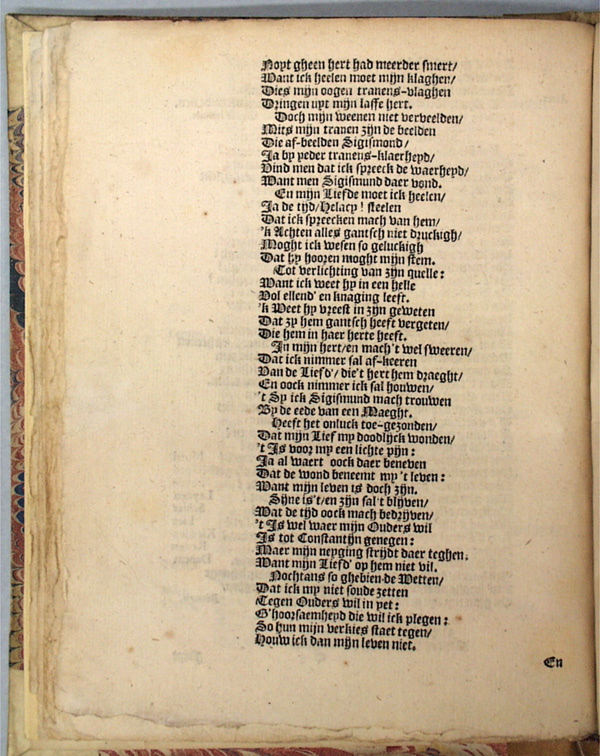 Noyt gheen hert had meerder smert/
Want ick heelen moet mijn klaghen/
Dies mijn oogen tranens-vlaghen
Dringen uyt mijn laffe hert.
Doch mijn weenen niet verveelden/
Mits mijn tranen zijn de beelden
Die af-beelden Sigismond/
Ja by yeder tranens-klaerheyd/
Vind men dat ick spreeck de waerheyd/
Want men Sigismund daer vond.
En mijn Liefde moet ick heelen/
Ja de tijd/Helacy! steelen
Dat ick spreecken mach van hem/
'k Achten alles gantsch niet druckigh/
Moght ick wesen so geluckigh
Dat hy hooren moght mijn stem.
Tot verlichting van zijn quelle:
Want ick weet hy in een helle
Vol ellend' en knaging leeft.
'k Weet hy vreest in zijn geweten
Dat zy hem gantsch heeft vergeten/
Die hem in haer herte heeft.
In mijn hert/en mach't wel sweeren/
Dat ick nimmer sal af-keeren
Van de Liefd'/ die't hert hem draeght/
En oock nimmer ick sal houwen/
't Sy ick Sigismund mach trouwen
By de eede van een Maeght.
Heeft het onluck toe-gezonden/
Dat mijn Lief my doodlijck wonden/
't Is voor my een lichte pijn:
Ja al waert oock daer beneven
Dat de wond beneemt my 't leven:
Want mijn leven is doch zijn.
Sijne is't/en zijn sal't blijven/
Wat de tijd oock mach bedrijven/
't Is wel waer mijn Ouders wil
Is tot Constantijn genegen:
Maer mijn neyging strijdt daer teghen,
Want mijn Liefd' op hem niet vil.
Nochtans so ghebien de Wetten/
Dat ick my niet soude zetten
Tegen Ouders wil in yet:
G'hoorsaemheyd die wil ick plegen:
So hun mijn verkies staet tegen/
Houw ick dan mijn leven niet.
En